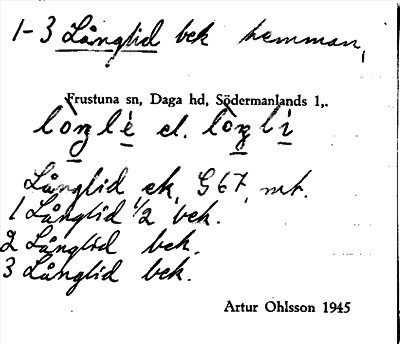 1-3 Långlid bek hemman,
Frustuna sn, Daga hd, Södermanlands l,.
lòŋlè el. lòŋlì
Långlid ek, G67, mt.
1 Långlid 1/2 bek.
2 Långlid bek.
3 Långlid bek.
Artur Ohlsson 1945